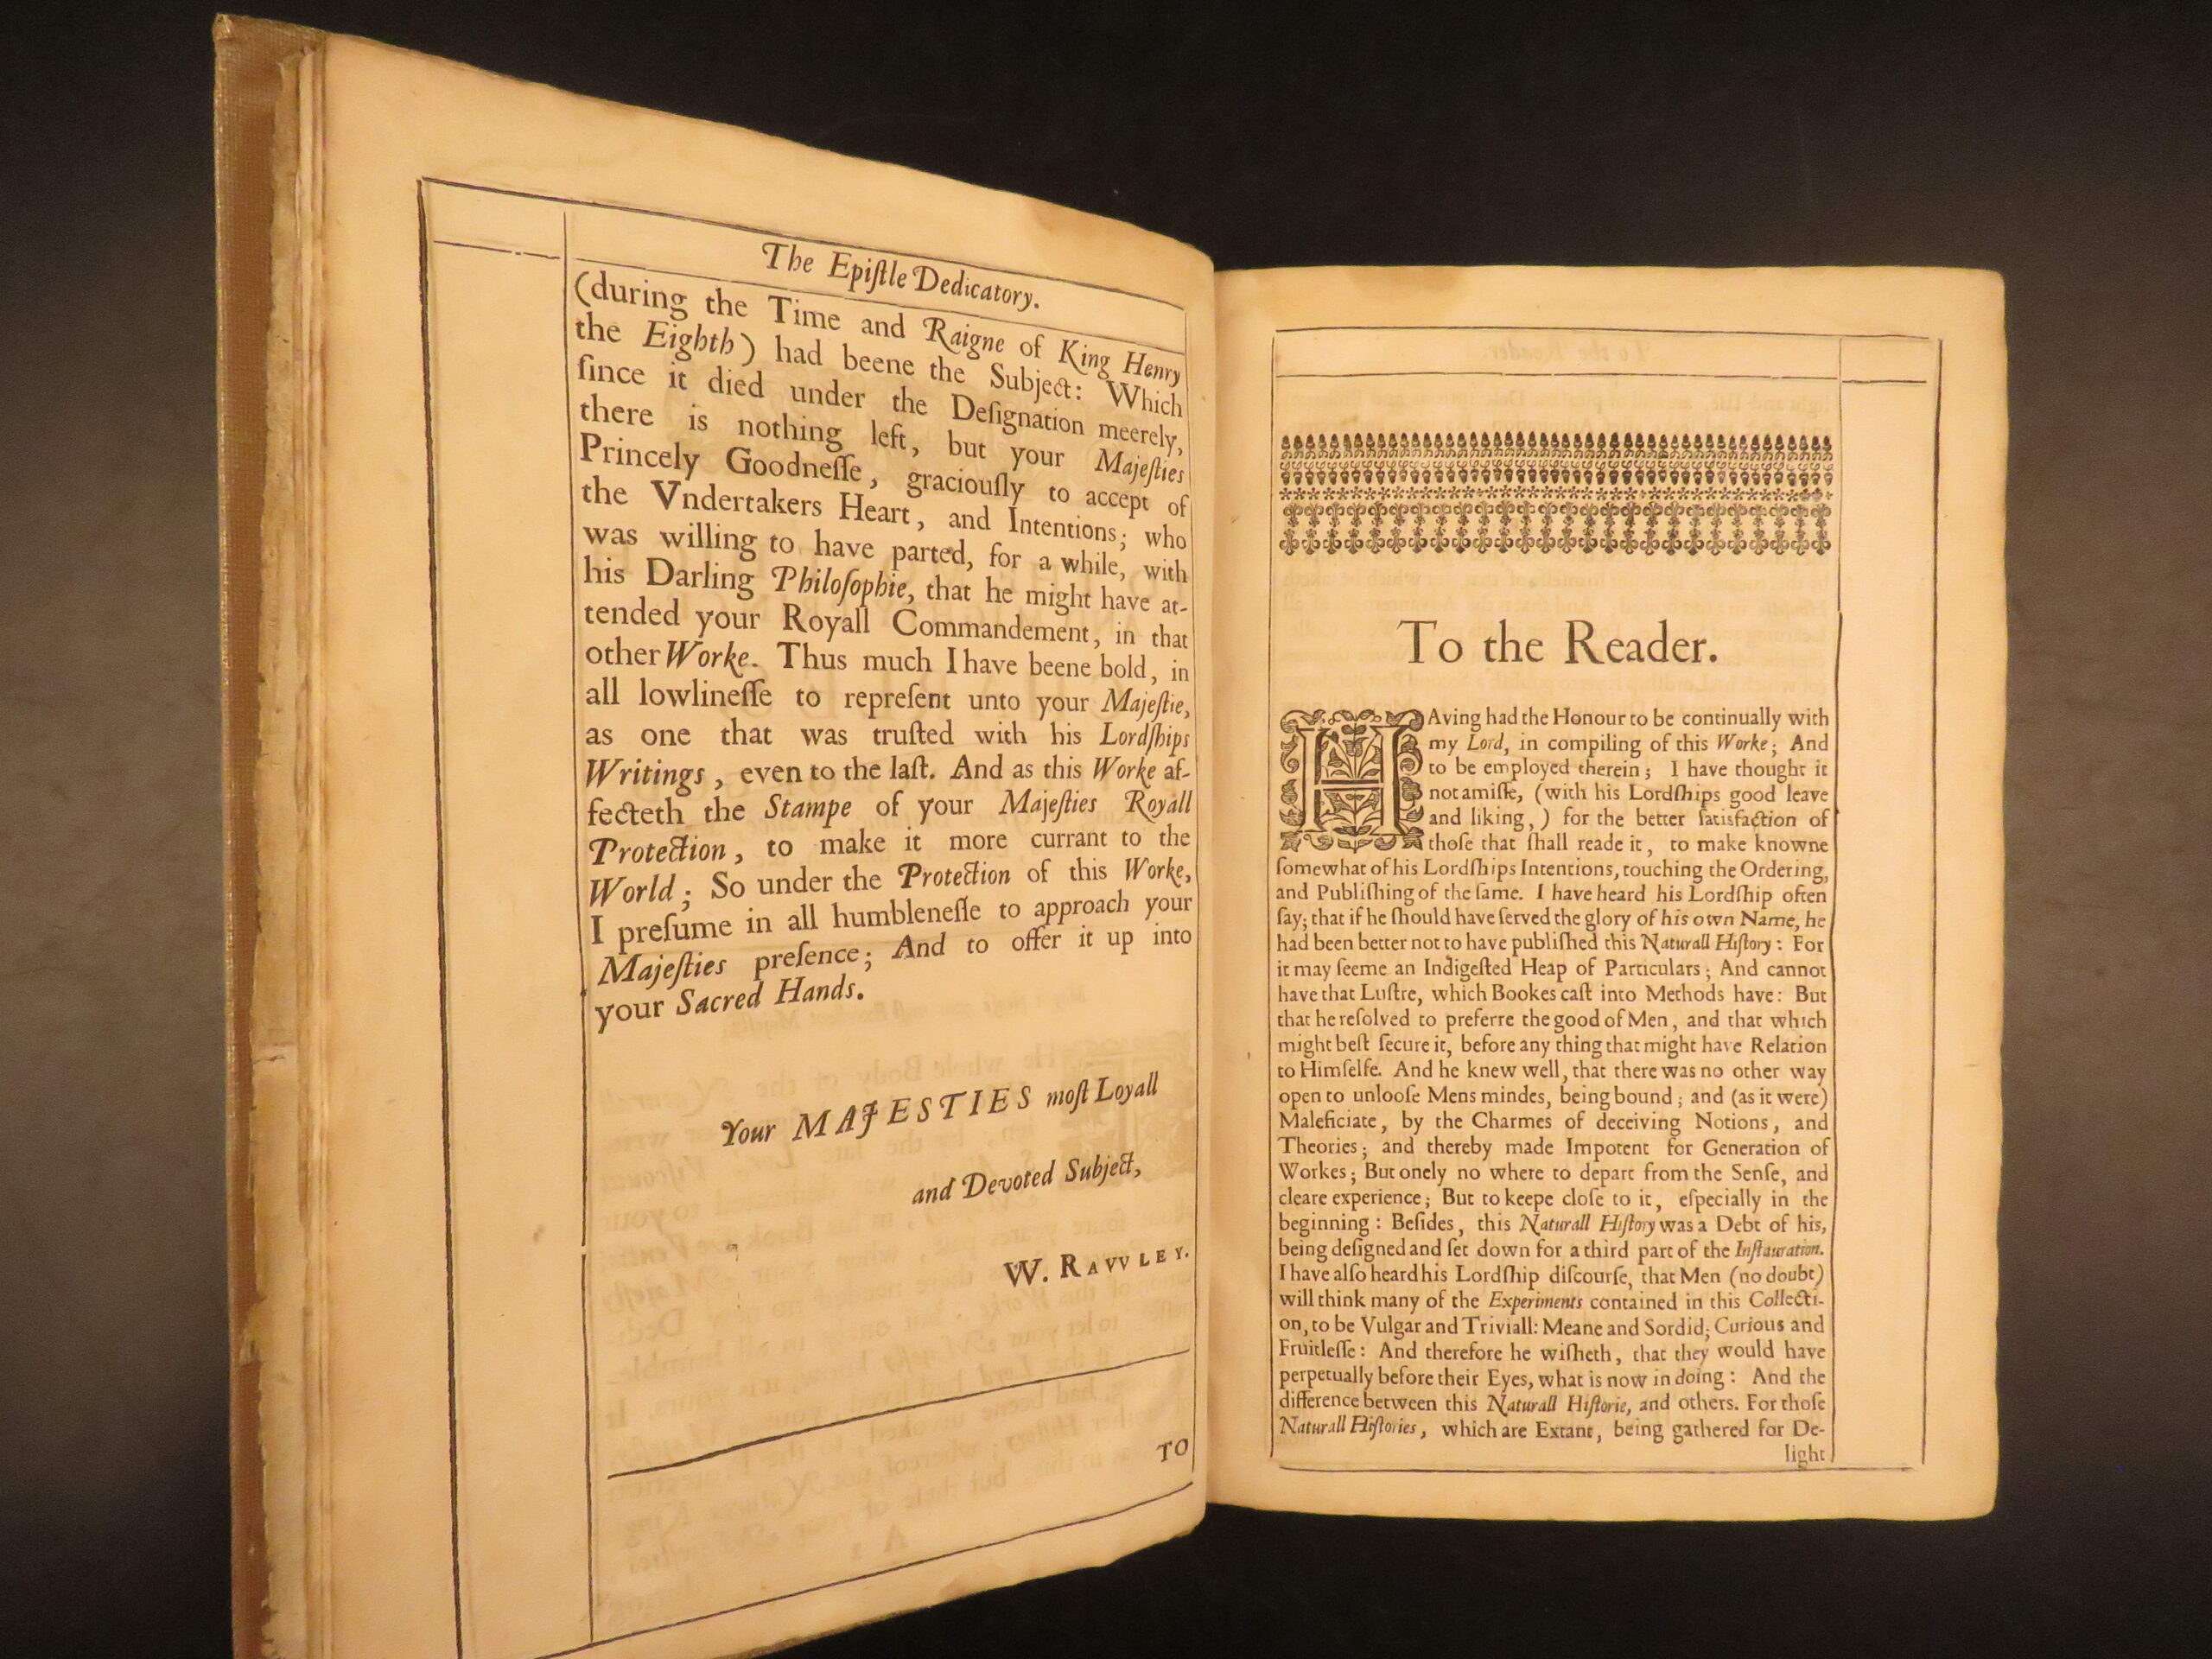 The Epiſtle Dedicatory.
(during the Time and Raigne of King Henry
the Eighth) had beene the Subject: Which
ſince it died under the Deſignation meerely,
there is nothing left, but your Majeſties
Princely Goodneſſe, graciouſly to accept of
the Vndertakers Heart, and Intentions; who
was willing to have parted, for a while, with
his Darling Philoſophie, that he might have at-
tended your Royall Commandement, in that
other Worke. Thus much I have beene bold, in
all lowlineſſe to repreſent unto your Majeſtie,
as one that was truſted with his Lordſhips
Writings, even to the laſt. And as this Worke af-
fecteth the Stampe of your Majeſties Royall
Protection, to make it more currant to the
World; So under the Protection of this Worke,
I preſume in all humbleneſſe to approach your
Majeſties preſence; And to offer it up into
your Sacred Hands.
Your MAJESTIES moſt Loyall
and Devoted Subject,
W. RAVVLEY.
TO
To the Reader.
HAving had the Honour to be continually with
my Lord, in compiling of this Worke; And
to be employed therein; I have thought it
not amiſſe, (with his Lordſhips good leave
and liking,) for the better ſatisfaction of
thoſe that ſhall reade it, to make knowne
ſomewhat of his Lordſhips Intentions, touching the Ordering,
and Publiſhing of the ſame. I have heard his Lordſhip often
ſay; that if he ſhould have ſerved the glory of his own Name, he
had been better not to have publiſhed this Naturall Hiſtory: For
it may ſeeme an Indigeſted Heap of Particulars; And cannot
have that Luſtre, which Bookes caſt into Methods have: But
that he reſolved to preferre the good of Men, and that which
might beſt ſecure it, before any thing that might have Relation
to Himſelfe. And he knew well, that there was no other way
open to unlooſe Mens mindes, being bound; and (as it were)
Maleficiate, by the Charmes of deceiving Notions, and
Theories; and thereby made Impotent for Generation of
Workes; But onely no where to depart from the Senſe, and
cleare experience; But to keepe cloſe to it, eſpecially in the
beginning: Beſides, this Naturall Hiſtory was a Debt of his,
being deſigned and ſet down for a third part of the Inſtauration.
I have alſo heard his Lordſhip diſcourſe, that Men (no doubt)
will think many of the Experiments contained in this Collecti-
on, to be Vulgar and Triviall: Meane and Sordid; Curious and
Fruitleſſe: And therefore he wiſheth, that they would have
perpetually before their Eyes, what is now in doing: And the
difference between this Naturall Hiſtorie, and others. For thoſe
Naturall Hiſtories, which are Extant, being gathered for De-
light